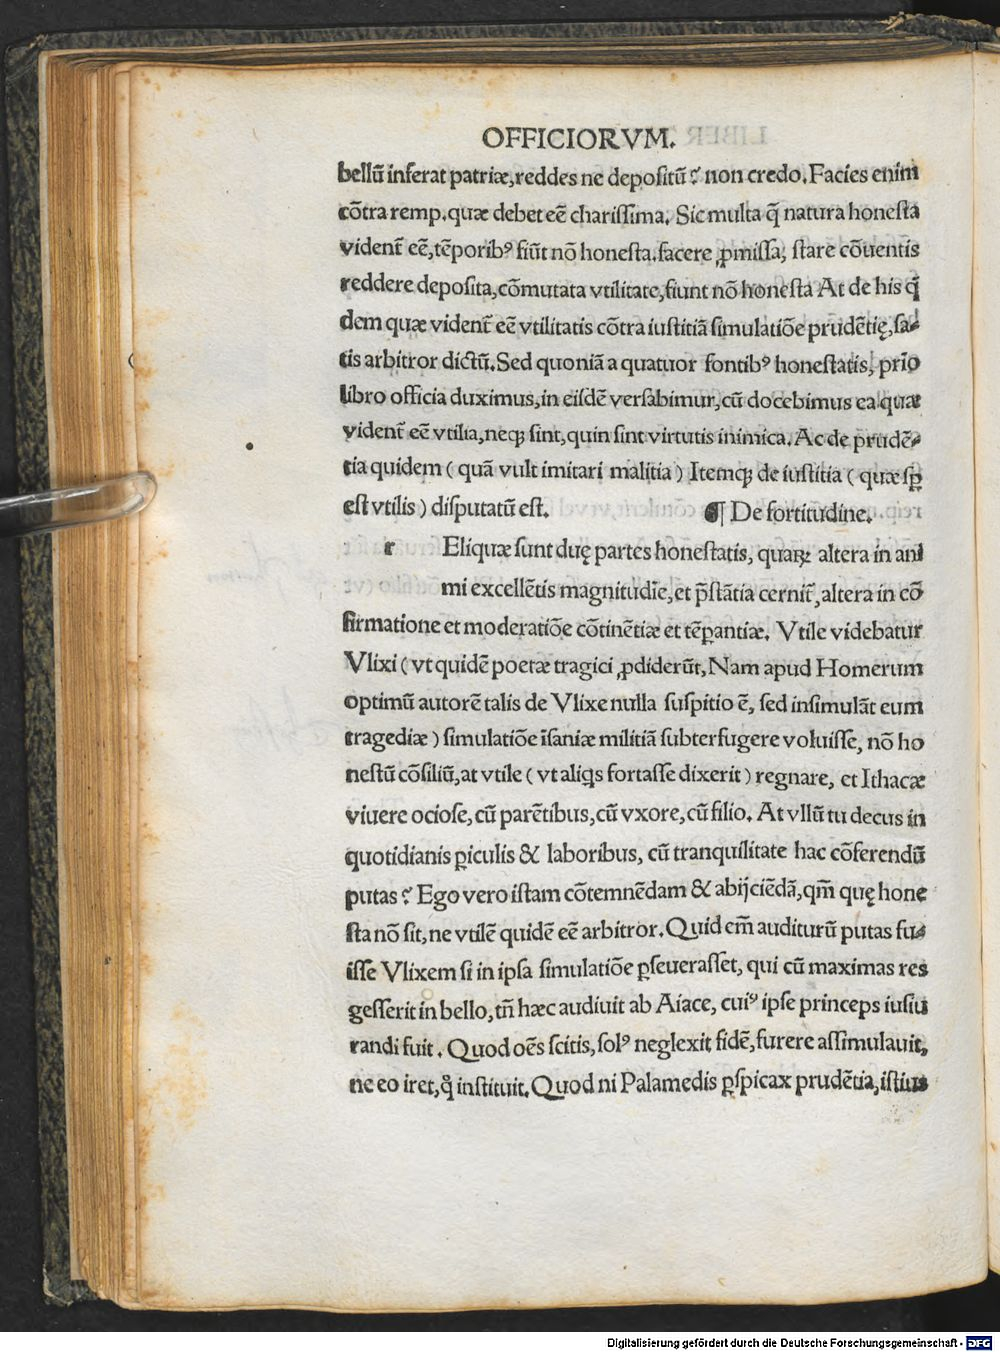 OFFICIORVM.
bellū inferat patriæ, reddes ne depositū? non credo. Facies enim
cōtra remp. quæ debet eē charissima. Sic multa q̄ natura honesta
vident̄ eē, tēporibꝰ fiūt nō honesta. facere ꝓmissa, stare cōuentis
reddere deposita, cōmutata vtilitate, fiunt nō honesta At de his q̄
dem quæ vident̄ eē vtilitatis cōtra iustitiā simulatiōe prudētię, sa-
tis arbitror dictū. Sed quoniā a quatuor fontibꝰ honestatis, prīo
libro officia duximus, in eisdē versabimur, cū docebimus ea quæ
vident̄ eē vtilia, neqꝫ sint, quin sint virtutis inimica. Ac de prudē-
tia quidem (quā vult imitari malitia) Itemqꝫ de iustitia (quæ sꝑ
est vtilis) disputatū est. ¶ De fortitudine.
r Eliquæ sunt duę partes honestatis, quaꝝ altera in ani
mi excellētis magnitudīe, et p̄stātia cernit̄, altera in cō
firmatione et moderatiōe cōtinētiæ et tēꝑantiæ. Vtile videbatur
Vlixi (vt quidē poetæ tragici ꝓdiderūt, Nam apud Homerum
optimū autorē talis de Vlixe nulla suspitio ē, sed insimulāt eum
tragediæ) simulatiōe īsaniæ militiā subterfugere voluisse, nō ho
nestū cōsiliū, at vtile (vt aliqs fortasse dixerit) regnare, et Ithacæ
viuere ociose, cū parētibus, cū vxore, cū filio. At vllū tu decus in
quotidianis ꝑiculis & laboribus, cū tranquilitate hac cōferendū
putas? Ego vero istam cōtemnēdam & abijciēdā, qm̄ quę hone
sta nō sit, ne vtilē quidē eē arbitror. Quid em̄ auditurū putas fu-
isse Vlixem si in ipsa simulatiōe ꝑseuerasset, qui cū maximas res
gesserit in bello, tn̄ hæc audiuit ab Aiace, cuiꝰ ipse princeps iusiu
randi fuit. Quod oēs scitis, solꝰ neglexit fidē, furere assimulauit,
ne eo iret, q̊ instituit. Quod ni Palamedis ꝑspicax prudētia, istius
Digitalisierung gefördert durch die Deutsche Forschungsgemeinschaft - DFG